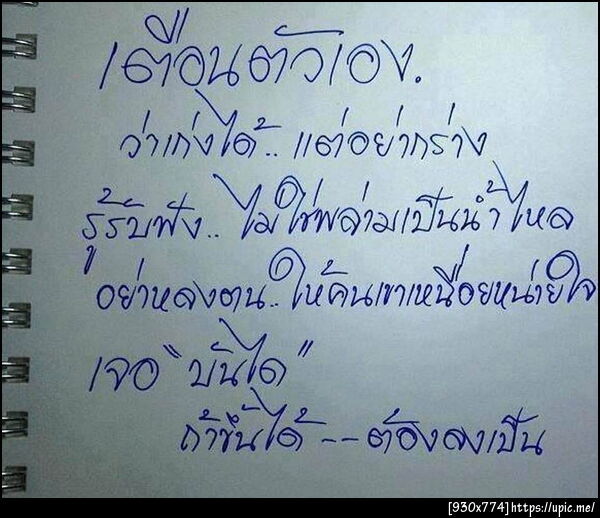 เตือนตัวเอง.
ว่าเก่งได้.. แต่อย่ากร่าง
รู้รับฟัง.. ไม่ใช่พล่ามเป็นน้ำไหล
อย่าหลงตน.. ให้คนเขาเหนื่อยหน่ายใจ
เจอ "บันได"
ถ้าขึ้นได้ -- ต้องลงเป็น
[930x774]https://upic.me/